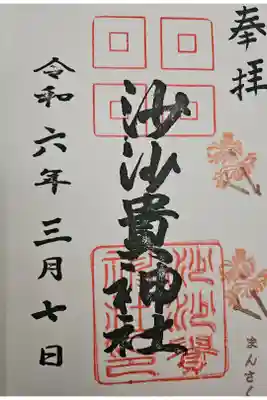 奉拝
まんさく
沙沙貴神社
令和六年三月七日